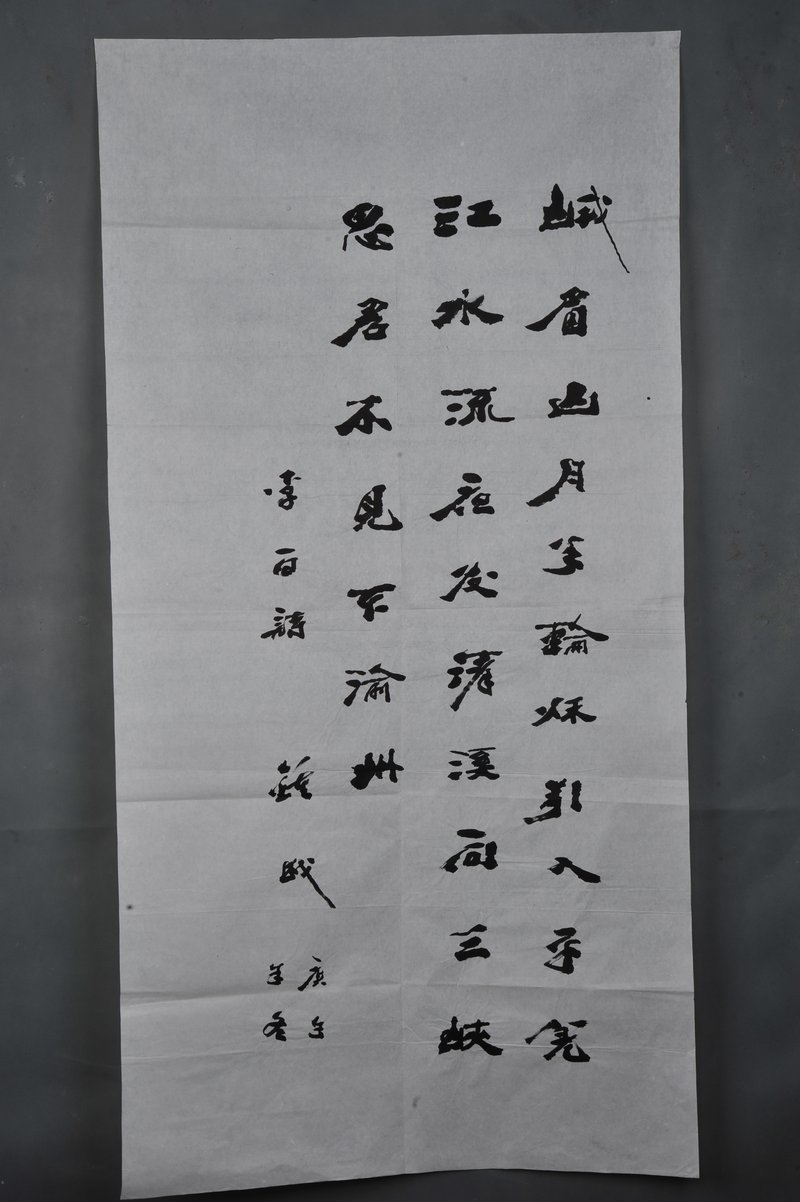 峨眉山月半輪秋引入平羌
江水流夜发清溪向三峡
思君不見下渝州
李白詩
庚午
年冬